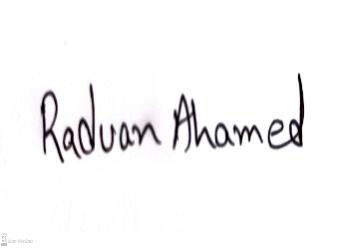 Raduan Ahamed